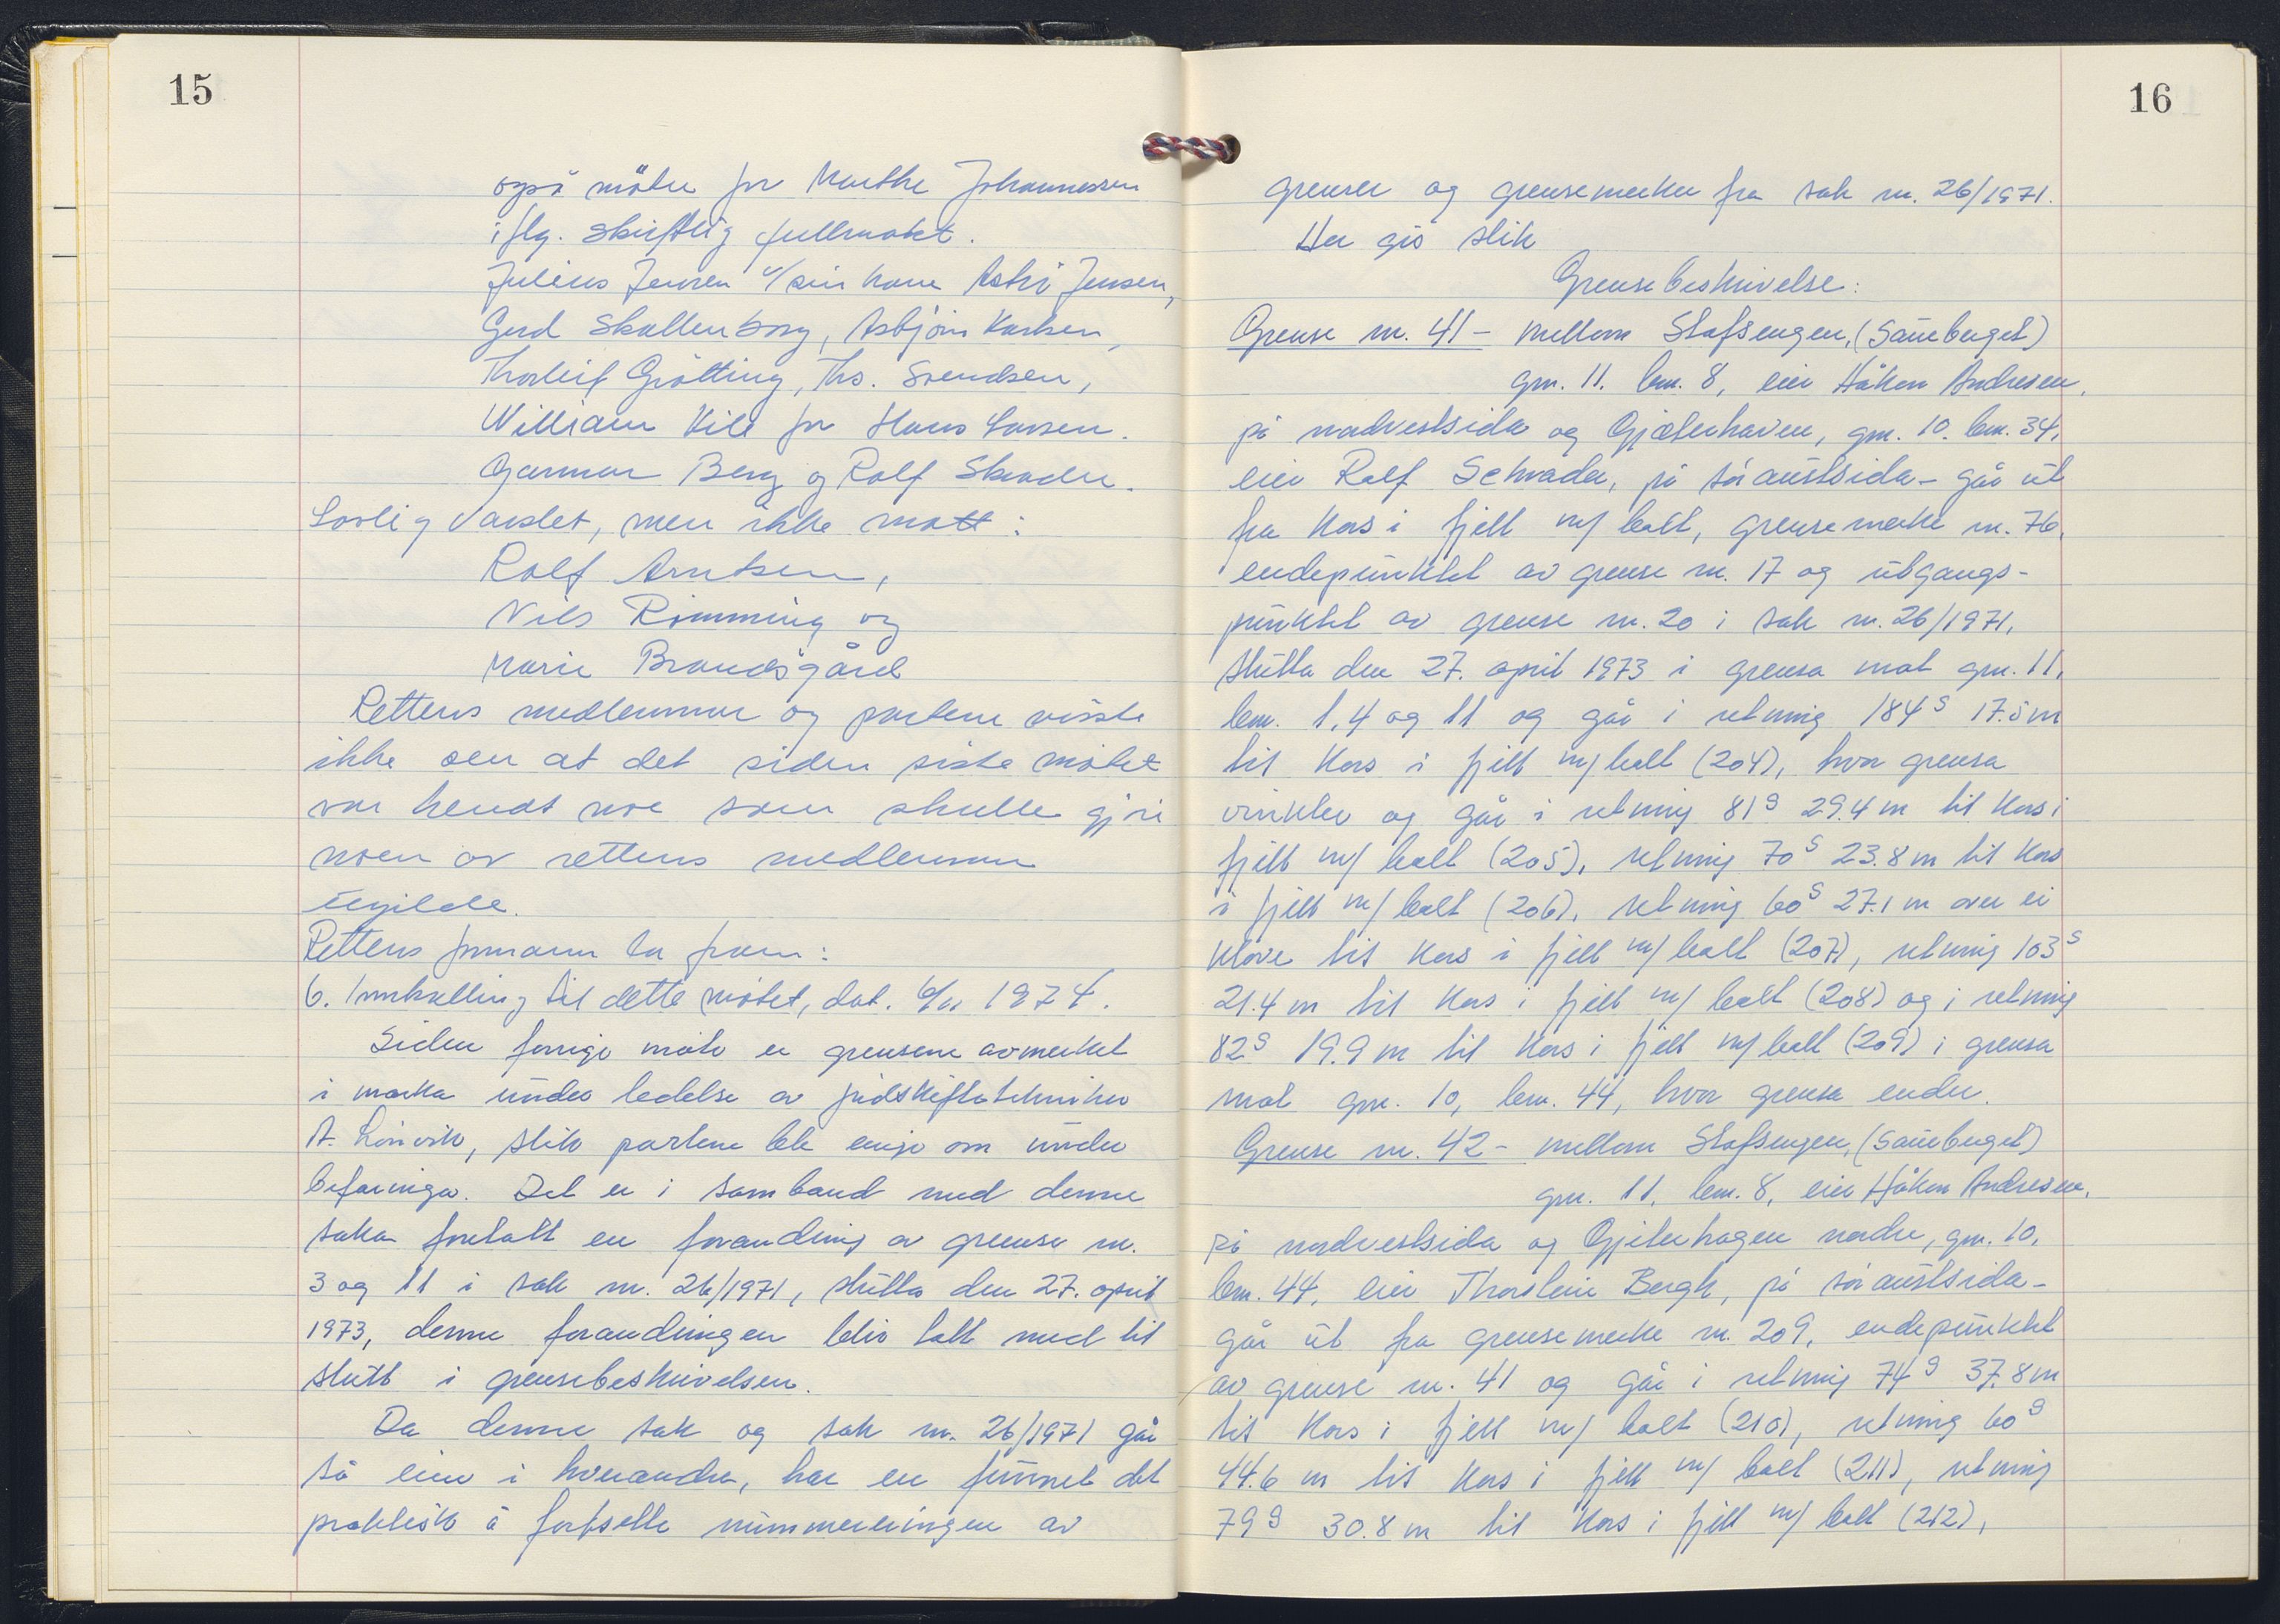 15
også møter for Marthe Johannessen
iflg. skriftlig fullmakt.
Julius Jensen v/sin kone Astri Jensen,
Gerd Skallenborg, Asbjørn Karlsen,
Thorleif Grøtting, Ths. Svendsen,
William Kile for Hans Larsen.
Gunnar Berg og Rolf Skrader.
Lovlig varslet, men ikke møtt:
Rolf Arntsen,
Nils Rimming og
Marie Brandsgård
Rettens medlemmer og partene visste
ikke om at det siden siste møtet
var hendt noe som skulle gjøre
noen av rettens medlemmer
ugilde.
Rettens formann la fram:
6. Innkalling til dette møtet, dat. 6/11 1974.
Siden forrige møte er grensene avmerket
i marka under ledelse av jordskiftetekniker
A. Lønvik, slik partene ble enige om under
befaringa. Det er i samband med denne
saka foretatt en forandring av grense nr.
3 og 11 i sak nr. 26/1971, slutta den 27. april
1973, denne forandringen blir tatt med til
slutt i grensebeskrivelsen.
Da denne sak og sak nr. 26/1971 går
så inn i hverandre, har en funnet det
praktisk å fortsette nummereringen av
16
grenser og grensemerker fra sak nr. 26/1971.
Her gis slik
Grensebeskrivelse:
Grense nr. 41 - mellom Slafsengen, (Sauberget)
gnr. 11. bnr. 8, eier Håkon Andresen,
på nordvestsida og Gjeterhaven, gnr. 10. bnr. 34,
eier Rolf Schrader, på søraustsida - går ut
fra kors i fjell m/ bolt, grensemerke nr. 76,
endepunktet av grense nr. 17 og utgangs-
punktet av grense nr. 20 i sak nr. 26/1971,
slutta den 27. april 1973 i grensa mot gnr. 11,
bnr. 1, 4 og 11 og går i retning 184g 17.5 m
til kors i fjell m/ bolt (204), hvor grensa
vinkler og går i retning 81g 29.4 m til kors i
fjell m/ bolt (205), retning 70g 23.8 m til kors
i fjell m/ bolt (206), retning 60g 27.1 m over ei
kløve til kors i fjell m/ bolt (207), retning 103g
21.4 m til kors i fjell m/ bolt (208) og i retning
82g 19.9 m til kors i fjell m/ bolt (209) i grensa
mot gnr. 10, bnr. 44, hvor grensa ender.
Grense nr. 42 - mellom Slafsengen, (Sauberget)
gnr. 11, bnr. 8, eier Håkon Andresen,
på nordvestsida og Gjeterhagen nordre, gnr. 10,
bnr. 44, eier Thorstein Bergh, på søraustsida -
går ut fra grensemerke nr. 209, endepunktet
av grense nr. 41 og går i retning 74g 37.8 m
til kors i fjell m/ bolt (210), retning 60g
44.6 m til kors i fjell m/ bolt (211), retning
79g 30.8 m til kors i fjell m/ bolt (212),